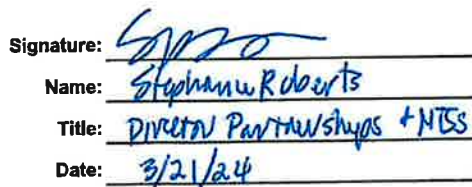 Signature:
Name: Stephanie Roberts
Title: Director Partnerships + MTSS
Date: 3/21/24